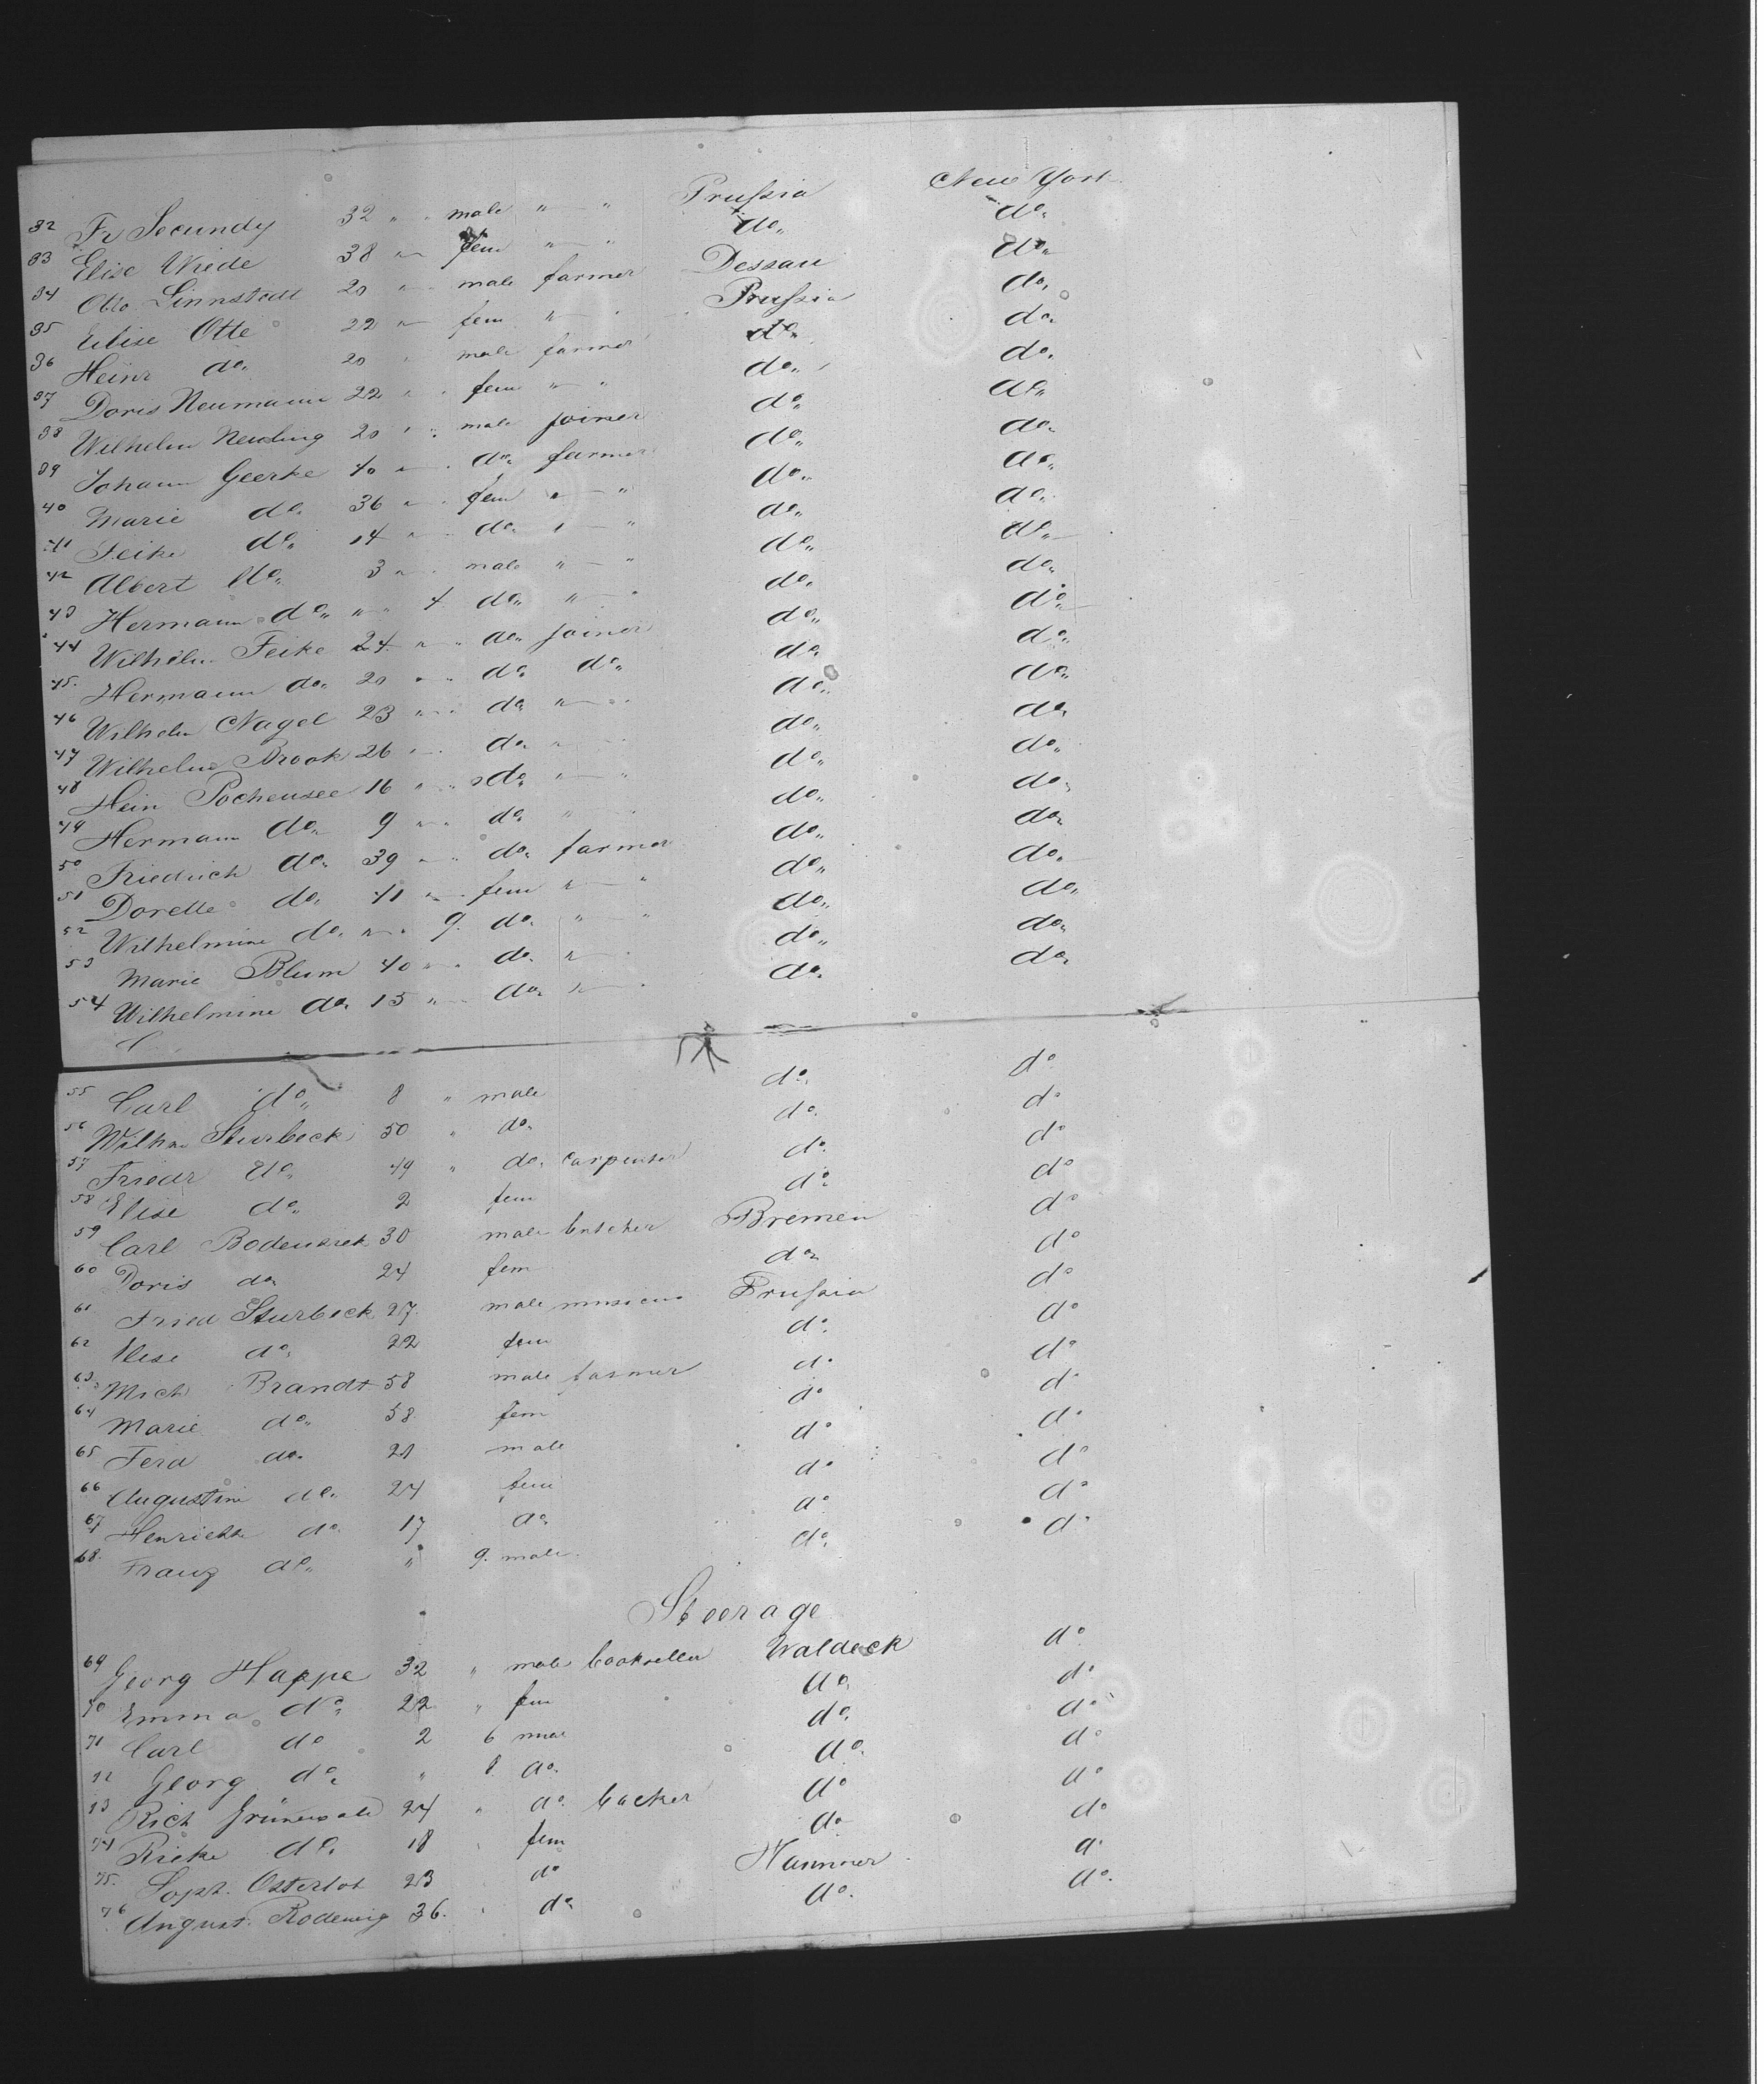 32 Fr Secundy 32 " " male " — " Prussia New York
33 Elise Wiede 38 " — fem " — " do. do.
34 Otto Sinnstedt 20 " — male farmer Dessau do.
35 Elise Otte 22 " — fem " — " Prussia do.
36 Heinr do. 20 " male farmer do. do.
37 Doris Neumann 22 " " fem " — " do. do.
38 Wilhelm 20 " " male joiner do. do.
39 Johann Geerke 40 " — do. farmer do. do.
40 Marie do. 36 " — fem " — " do. do.
41 Feike do. 14 " — do. " — " do. do.
42 Albert do. 3 " — male " — " do. do.
43 Hermann do. " — 4 do. " — " do. do.
44 Wilhelm Feike 24 " — do. joiner do. do.
45. Hermann do. 20 " — do. do. do. do.
46 Wilhelm Nagel 23 " — do. " — " do. do.
47 Wilhelm Brook 26 " — do. " — " do. do.
48 Hein Pochensee 16 " — do. " — " do. do.
49 Hermann do. 9 " — do. " — " do. do.
50 Friedrich do. 39 " — do. farmer do. do.
51 Dorette do. 41 " — fem " — " do. do.
52 Wilhelmine do. " — 9. do. " — " do. do.
53 Marie Blum 40 " — do. " — " do. do.
54 Wilhelmine do. 15 " — do. " — " do. do.
55 Carl do. 8 " male do. do
56 Sturbeck 50 " do. do. do
57 Friedr do. 49 " do. carpenter do. do
58 Elise do. 2 fem do. do
59 Carl 30 male butcher Bremen do
60 Doris do. 24 fem do. do
61 Fried Sturbeck 27. male Prussia do
62 Elise do. 22 fem do. do
63 Mich Brandt 58 male farmer do. do
64 Marie do. 58 fem do do
65 Ferd do. 21 male do do
66 Augustine do. 24 fem do do
67 Henriette do. 17 do. do. do
68. Franz do. " 9. male. do. do
Steerage
69 Georg Happe 32 " male bookseller Waldeck do
70 Emma do. 22 " fem do. do
71 Carl do 2 6 male do. do
72 Georg do. " 8. do. do. do
73 Rich Grünewald 24 " do. backer do do
74 Rieke do. 18 fem do. do
75. Soph. Osterloh 23 do Hannover do
76 August. Rodewig 36. do. do. do.